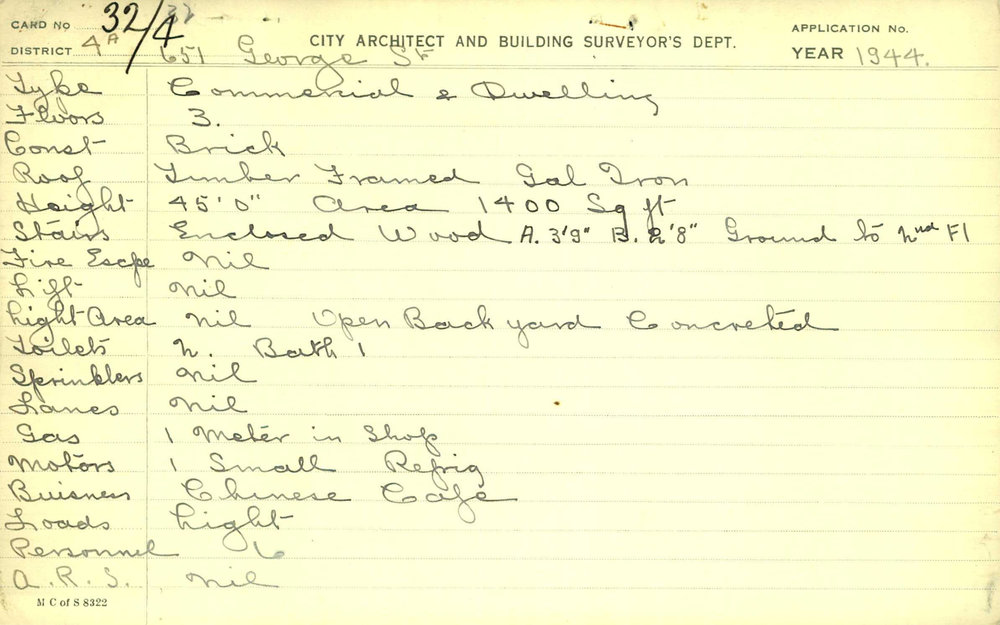 CARD NO 32/4 APPLICATION No.
DISTRICT 4A 651 George St CITY ARCHITECT AND BUILDING SURVEYOR'S DEPT. YEAR 1944.
Type Commercial & Dwelling
Floors 3.
Const Brick
Roof Timber Framed Gal Iron
Height 45'0" Area 1400 Sq ft
Stairs Enclosed Wood A. 3'9" B. 2'8" Ground to 2nd Fl
Fire Escpe Nil
Lift Nil
Light Area Nil Open Back yard Concreted
Toilets 2. Bath 1
Sprinklers Nil
Lanes Nil
Gas 1 Meter in Shop
Motors 1 Small Refrig
Buisness Chinese Cafe
Loads Light
Personnel 6
A.R.S. Nil
M C of S 8322